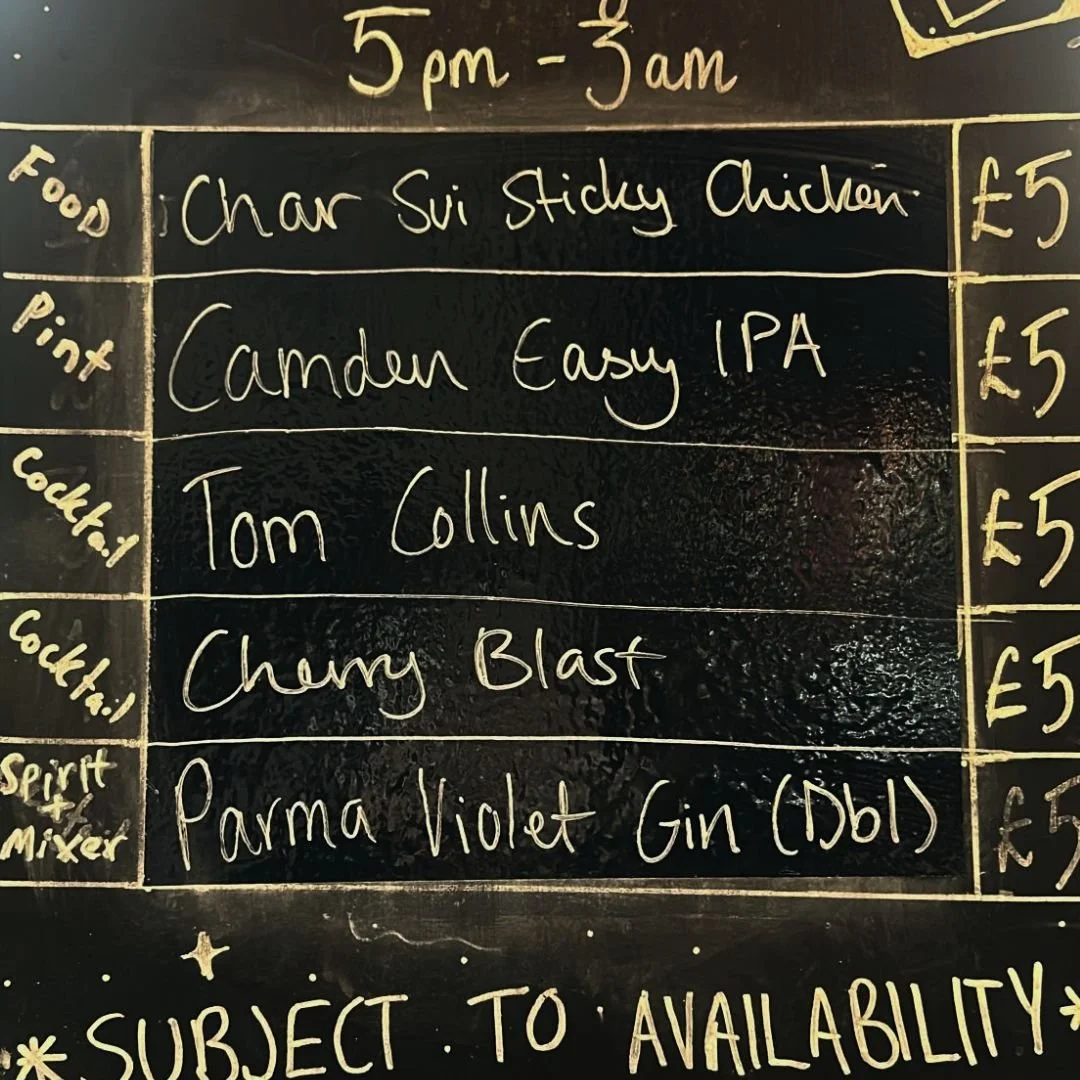 5pm - 3am
Food Char Sui Sticky Chicken £5
Pint Camden Easy IPA £5
Cocktail Tom Collins £5
Cocktail Cherry Blast £5
Spirit + Mixer Parma Violet Gin (Dbl) £5
*SUBJECT TO AVAILABILITY*